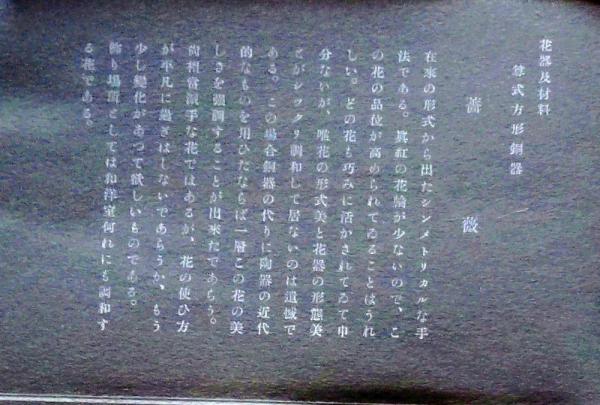 花器及材料
尊式方形銅器
薔薇
在来の形式から出たシンメトリカルな手
法である。眞紅の花輪が少ないので、こ
の花の品位が高められてゐることはうれ
しい。どの花も巧みに活かされてゐて申
分ないが、唯花の形式美と花器の形態美
とがシックリ調和して居ないのは遺憾で
ある。この場合銅器の代りに陶器の近代
的なものを用ひたならば一層この花の美
しさを強調することが出来たであらう。
尚相當派手な花ではあるが、花の使ひ方
が平凡に過ぎはしないであらうか、もう
少し變化があつて欲しいものである。
飾り場所としては和洋室何れにも調和す
る花である。